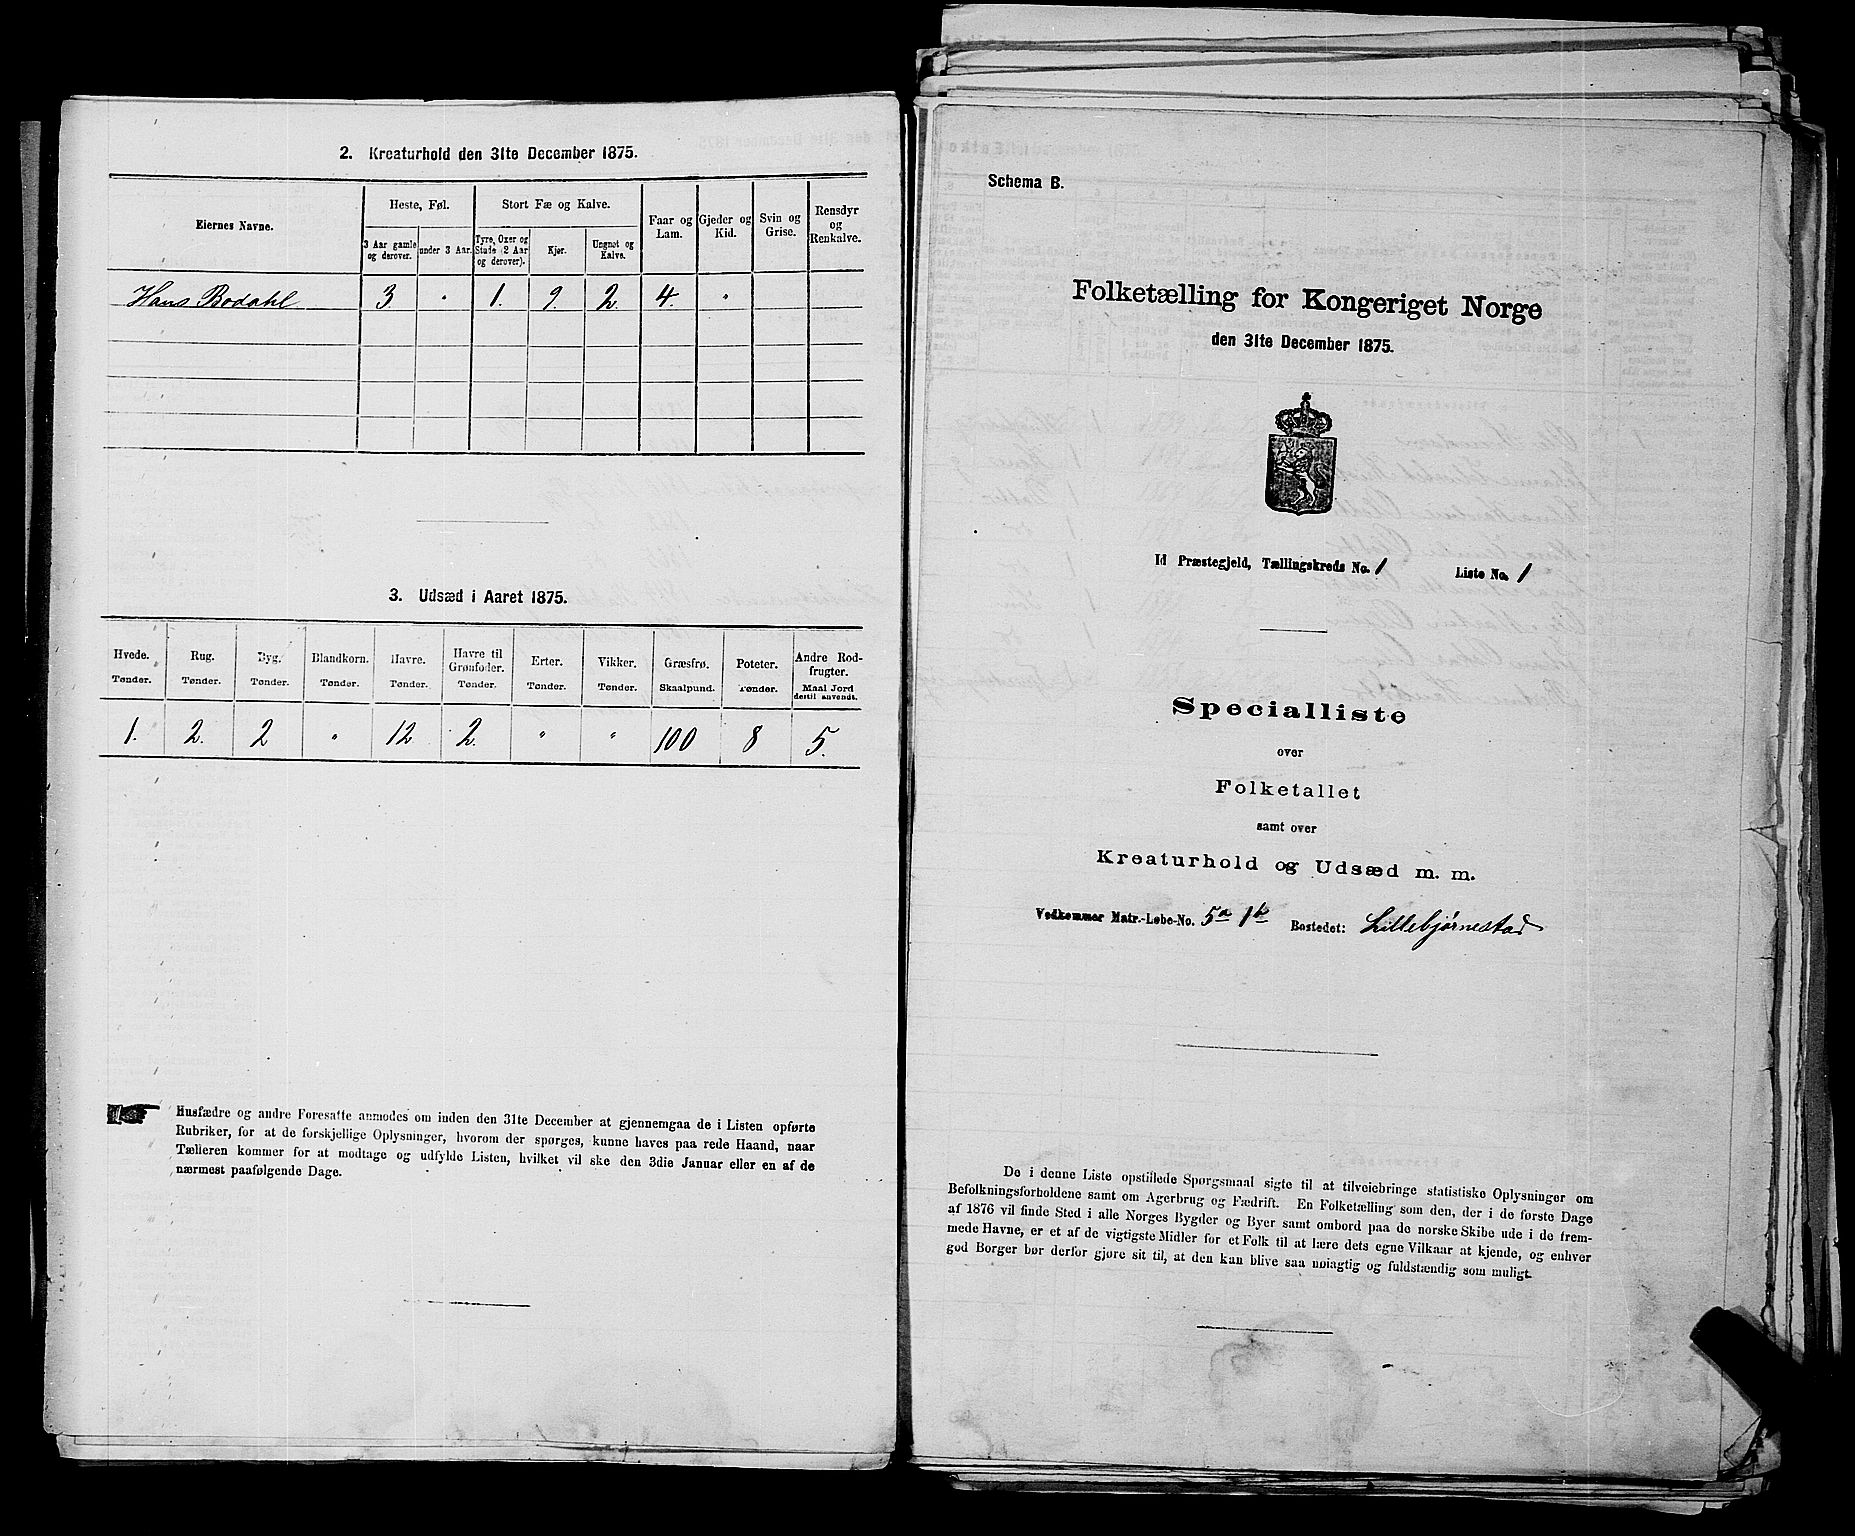 2. Kreaturhold den 31te December 1875.
Eiernes Navne.
Heste, Føl.
Stort Fæ og Kalve.
Faar og Lam.
Gjeder og Kid.
Svin og Grise.
Rensdyr og Renkalve.
3 Aar gamle og derover.
under 3 Aar.
Tyre, Oxer og Stude (2 Aar og derover).
Kjør.
Ungnøt og Kalve.
Hans Bodahl 3 " 1. 9. 2. 4. "
3. Udsæd i Aaret 1875.
Hvede. Rug. Byg. Blandkorn. Havre. Havre til Grønfoder. Erter. Vikker. Græsfrø. Poteter. Andre Rodfrugter.
Tønder. Tønder. Tønder. Tønder. Tønder. Tønder. Tønder. Tønder. Skaalpund. Tønder. Maal Jord dertil anvendt.
1. 2. 2 " 12 2. " " 100 8 5.
Husfædre og andre Foresatte anmodes om inden den 31te December at gjennemgaa de i Listen opførte
Rubriker, for at de forskjellige Oplysninger, hvorom der spørges, kunne haves paa rede Haand, naar
Tælleren kommer for at modtage og udfylde Listen, hvilket vil ske den 3die Januar eller en af de
nærmest paafølgende Dage.
Schema B.
Folketælling for Kongeriget Norge
den 31te December 1875.
Id Præstegjeld, Tællingskreds No. 1 Liste No. 1
Specialliste
over
Folketallet
samt over
Kreaturhold og Udsæd m. m.
Vedkommer Matr.-Løbe-No. 5a 1b Bostedet: Lillebjørnestad
De i denne Liste opstillede Spørgsmaal sigte til at tilveiebringe statistiske Oplysninger om
Befolkningsforholdene samt om Agerbrug og Fædrift. En Folketælling som den, der i de første Dage
af 1876 vil finde Sted i alle Norges Bygder og Byer samt ombord paa de norske Skibe ude i de frem-
mede Havne, er et af de vigtigste Midler for et Folk til at lære dets egne Vilkaar at kjende, og enhver
god Borger bør derfor gjøre sit til, at den kan blive saa nøiagtig og fuldstændig som muligt.